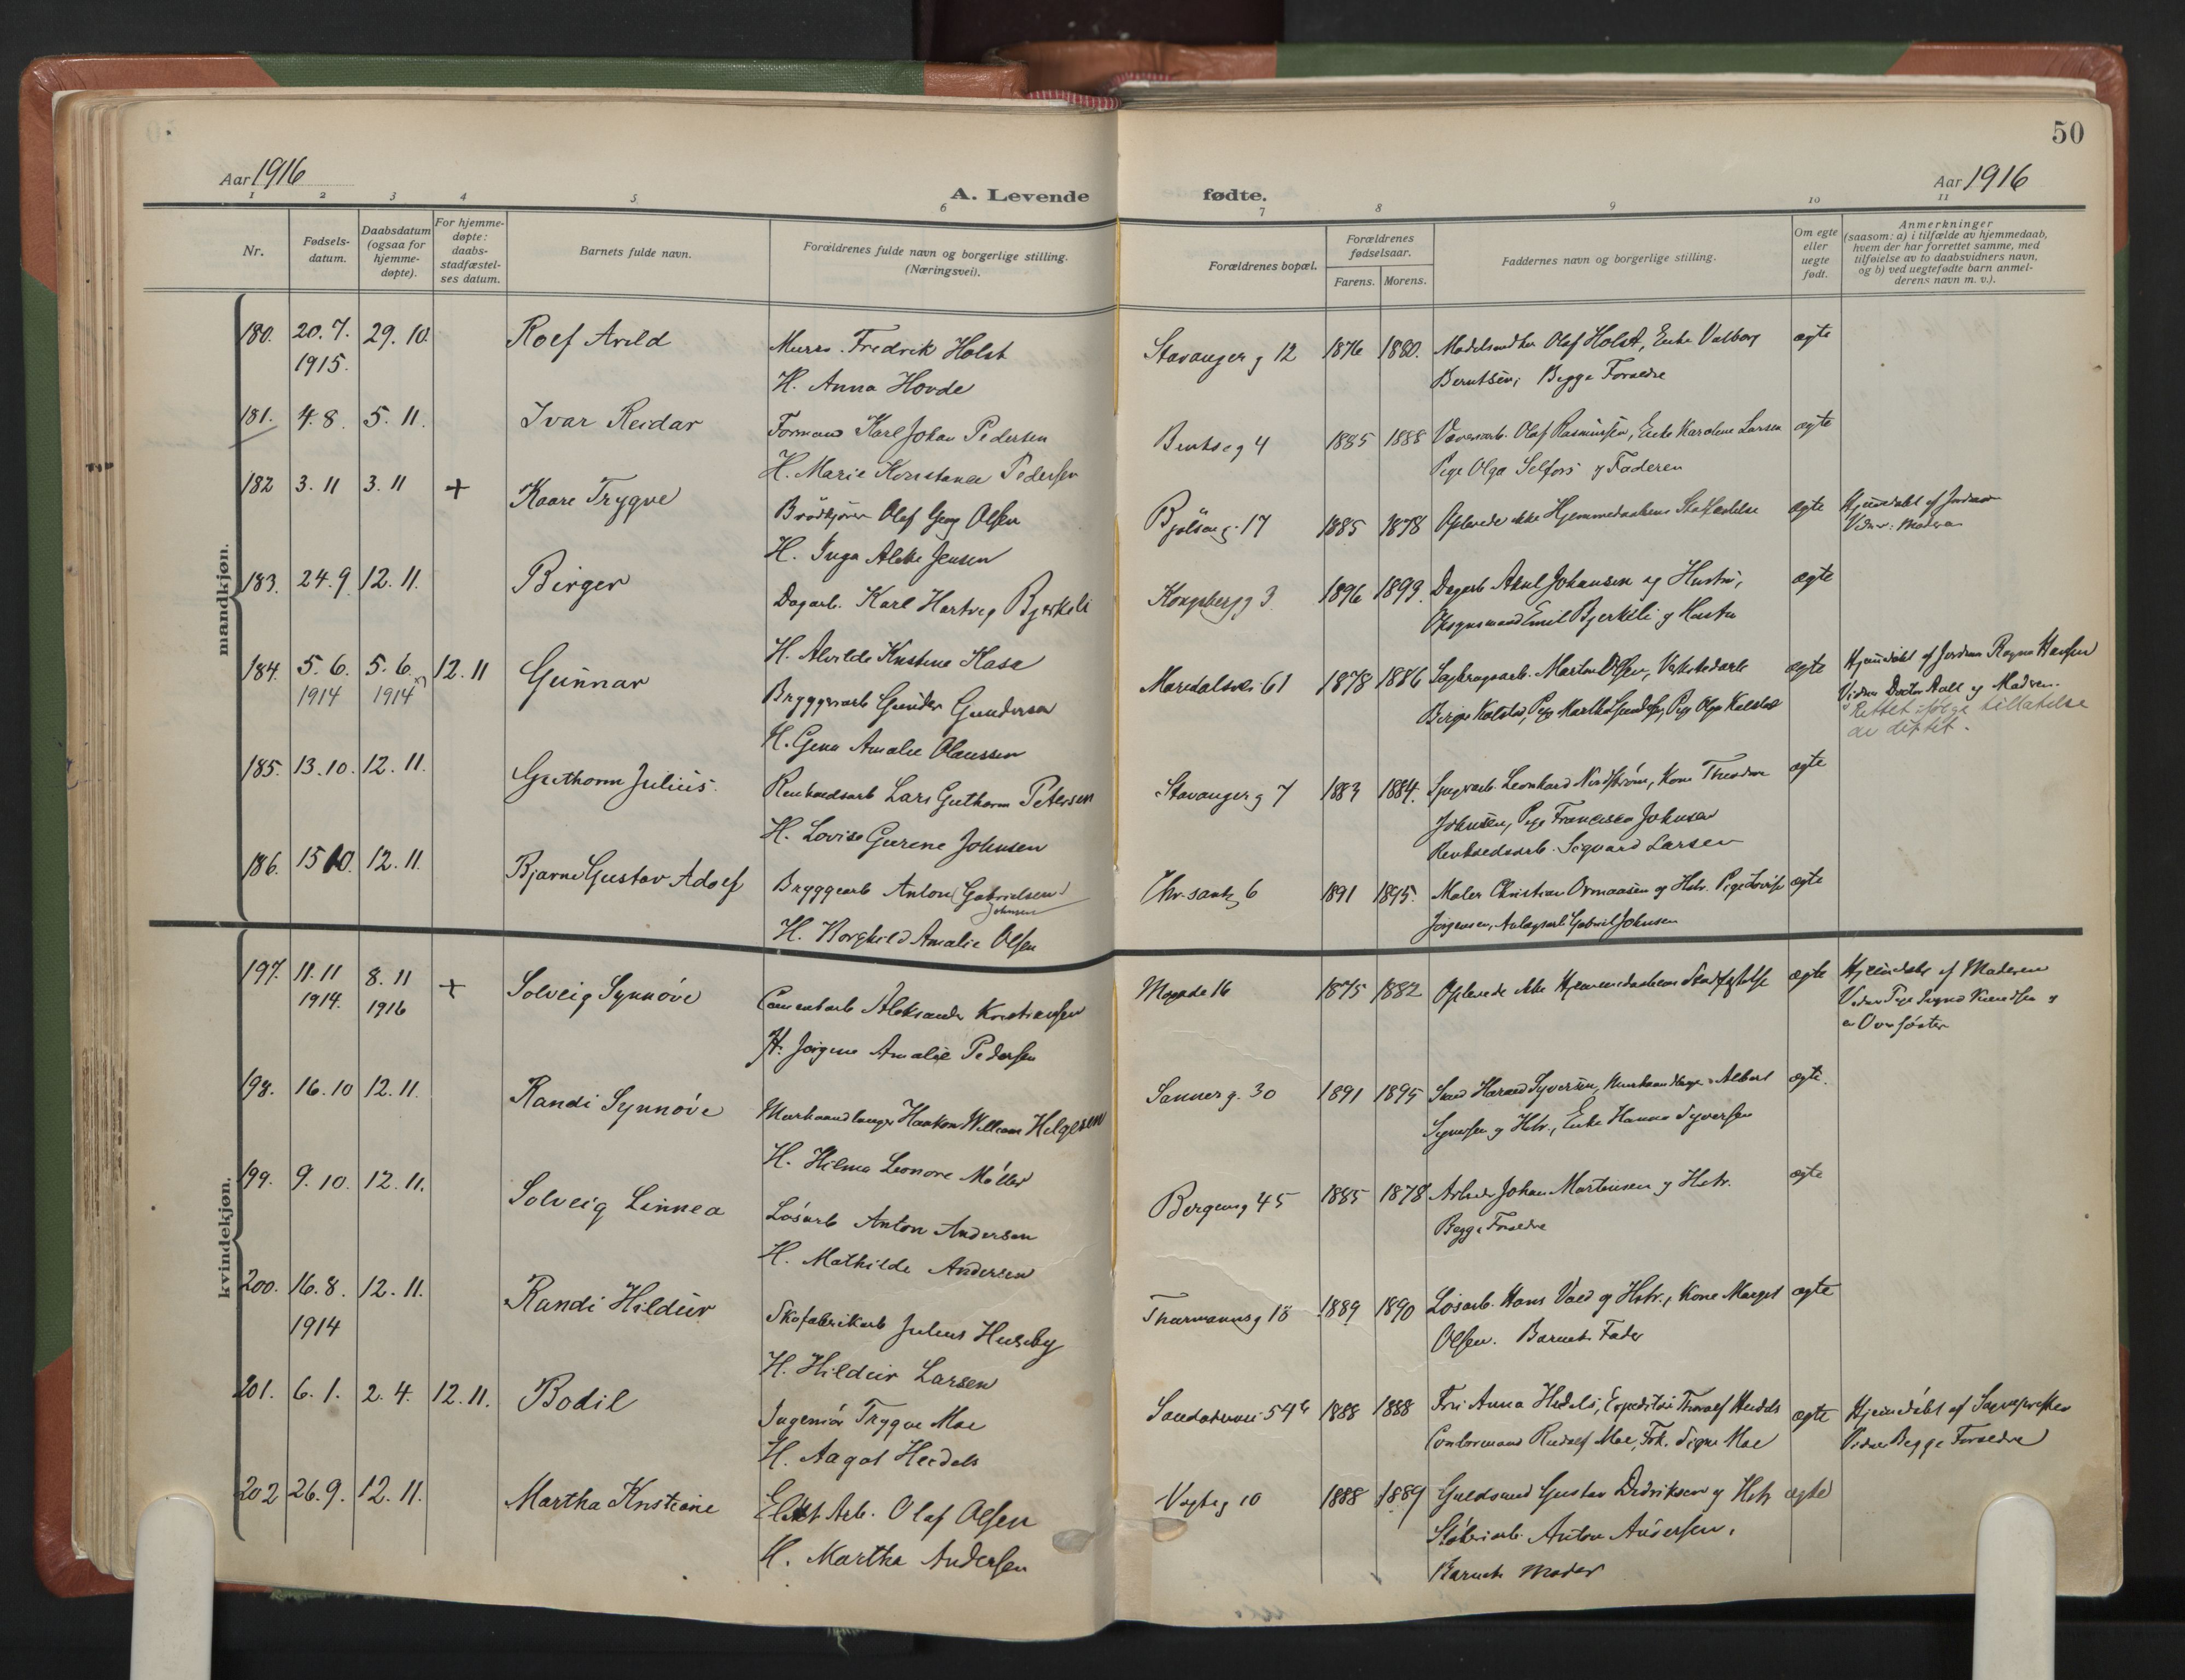 50
Aar 1916
A. Levende fødte.
Aar 1916
1 2 3 4 5 6 7 8 9 10 11
Nr.
Fødsels-
datum.
Daabsdatum
(ogsaa for
hjemme-
døpte).
For hjemme-
døpte:
daabs-
stadfæstel-
ses datum.
Barnets fulde navn.
Forældrenes fulde navn og borgerlige stilling.
(Næringsvei).
Forældrenes bopæl.
Forældrenes
fødselsaar.
Farens. Morens.
Faddernes navn og borgerlige stilling.
Om egte
eller
uegte
født.
Anmerkninger
(saasom: a) i tilfælde av hjemmedaab,
hvem der har forrettet samme, med
tilføielse av to daabsvidners navn,
og b) ved uegtefødte barn anmel-
derens navn m. v.).
mandkjøn.
180. 20. 7. 29. 10. Rolf Arild Fredrik Holst Stavanger g 12 1876 1880. Olaf Holst, Enke Valborg ægte
1915. H. Anna Hovde Berntsen, Begge Forældre
181. 4. 8. 5. 11. Ivar Reidar Formand Karl Johan Pedersen Bentse g 4 1885 1888 Olaf Rasmussen, Enke Karoline Larsen ægte
H. Marie Konstance Pedersen Pige Olga Selfors og Faderen
182 3. 11 3. 11 + Kaare Trygve Brødkjører Olaf Georg Olsen Bjølsen g. 17 1885 1878 Oplevede ikke Hjemmedaabens Stadfæstelse ægte Hjemdøbt af Jordmor
H. Inga Jensen Vidner: Moderen
183. 24. 9. 12. 11. Birger Dagarb. Karl Hartvig Bjerkeli Kongsberg g 3. 1896 1899. Dagarb Johansen og Hustru, ægte
H. Alvilde Kristine Emil Bjerkeli og Hustru
184. 5. 6. 5. 6. 12. 11 Gunnar Bryggeriarb Gunder Gundersen Maridalsvei 61 1878 1886 Martin Olsen, Verkstedarb ægte Hjemdøbt af Jordmor Ragna Hansen
1914 1914 H. Gina Amalie Olaussen Birger Kolstad, Pige Pige Olga Kolstad Vidner Doctor Aall og Moderen.
Rettet ifølge tillatelse
av dep'tet.
185. 13. 10. 12. 11. Guthorm Julius. Renholdsarb Lars Guthorm Petersen Stavanger g 7 1883 1884. Leonhard Nordstrøm, Kone Theodora ægte
H. Lovise Gurine Johnsen Johnsen, Pige Francisca Johnsen
Renholdsarb. Sigvard Larsen
186. 15 10. 12. 11. Bjarne Gustav Adolf Bryggearb Anton (Gabrielsen) Chr. sands g 6 1891 1895. Maler Christian Ormaasen og Hstr. Pige Lovise ægte
Johnsen
H. Borghild Amalie Olsen Jørgensen, Anlægsarb Gabriel Johnsen
kvindekjøn.
197. 11. 11 8. 11 + Solveig Synnøve Cementarb Aleksander Kristiansen Mogade 16 1875 1882 Oplevede ikke Hjemmedaabens Stadfæstelse ægte Hjemdøbt af Moderen
1914. 1916 H. Jørgine Amalie Pedersen Vidner Pige Signe Knudsen og
en Oversøster
198. 16. 10 12. 11. Randi Synnøve Murhaandlanger Haakon William Helgesen Sanner g. 30 1891 1895 Harald Syversen, Murhaandlanger Albert ægte.
H. Hilma Leonore Møller Syversen og Hstr., Enke Hanna Syversen
199. 9. 10. 12. 11. Solveig Linnea Løsarb Anton Andersen Bergensg 45 1885 1878 Arbeider Johan Martinsen og Hstr. ægte
H. Mathilde Andersen Begge Forældre
200. 16. 8. 12. 11. Randi Hildur Skofabrikarb Julius Huseby Thurmannsg 18 1889 1890 Løsarb. Hans Vold og Hstr., Kone Margit ægte
1914 H. Hildur Larsen Olsen. Barnets Fader
201. 6. 1. 2. 4. 12. 11. Bodil Ingeniør Trygve Moe 1888 1888 Fru Anna Heidels, Expeditør Thoralf Heidels ægte Hjemdøbt af Sogneprestens
H. Aagot Heidels Contormand Rudolf Moe, Frk. Signe Moe Vidner Begge Forældre
202 26. 9. 12. 11. Martha Kristiane Elekt Arb. Olaf Olsen Vogts g 10 1888 1889 Guldsmed Gustav Didriksen og Hstr ægte
H. Martha Andersen Støberiarb. Anton Andersen,
Barnets Moder